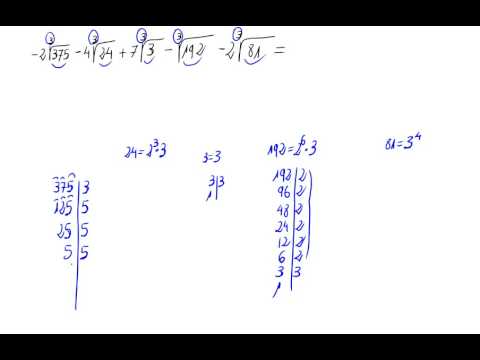 -2∛375 - 4∛24 + 7∛3 - ∛192 - 2∛81 =
24=2³·3
3=3
192=2⁶·3
81=3⁴
375 | 3
125 | 5
25 | 5
5 | 5
3 | 3
1
192 | 2
96 | 2
48 | 2
24 | 2
12 | 2
6 | 2
3 | 3
1